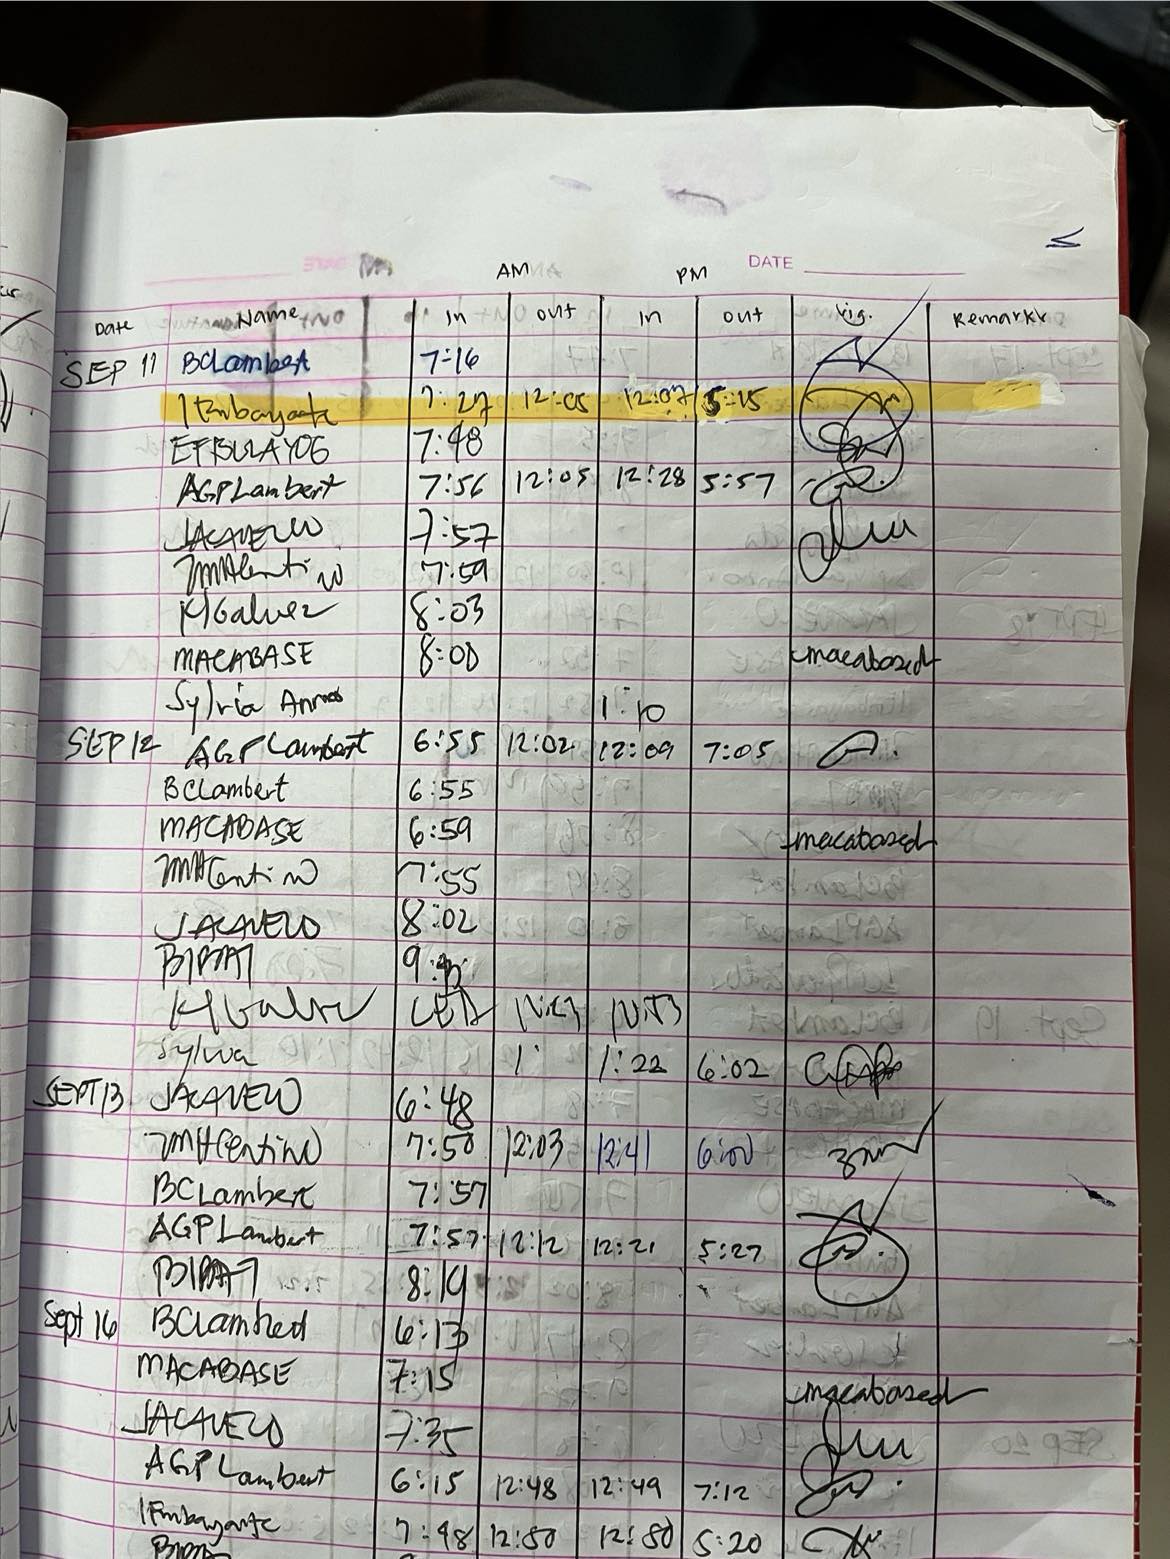 AM PM DATE
Date Name In out In out sig. Remarks
SEP 11 BCLambert 7:16
7:27 12:05 12:07 5:15
EFBULAYOG 7:48
AGPLambert 7:56 12:05 12:28 5:57
JACAVELO 7:57
7:59
KJGalvez 8:03
MACABASE 8:00 macabased
Sylvia 1:10
SEP 12 AGPLambert 6:55 12:02 12:09 7:05
BCLambert 6:55
MACABASE 6:59 macabased
MHCentino 7:55
JACAVELO 8:02
9:
Sylvia 1: 1:22 6:02
SEPT 13 JACAVELO 6:48
MHCentino 7:50 12:03 12:41 6:00
BCLambert 7:57
AGPLambert 7:57 12:12 12:21 5:27
8:19
Sept 16 BCLambert 6:13
MACABASE 7:15 macabased
JACAVELO 7:35
AGPLambert 6:15 12:48 12:49 7:12
7:48 12:50 12:50 5:20